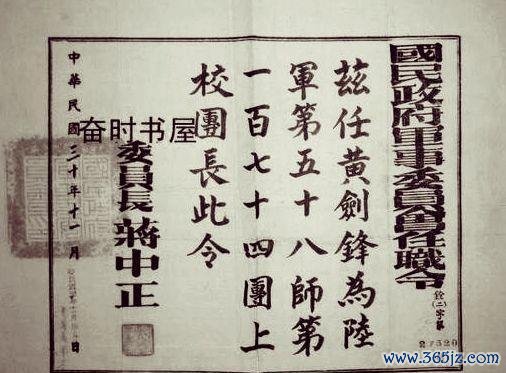 國民政府軍事委員會任職令
銓(二)字第
茲任黃劍鋒為陸
軍第五十八師第
一百七十四團上
校團長此令
委員長蔣中正
中華民國三十年十一月
日
奋时书屋
www.365jz.com